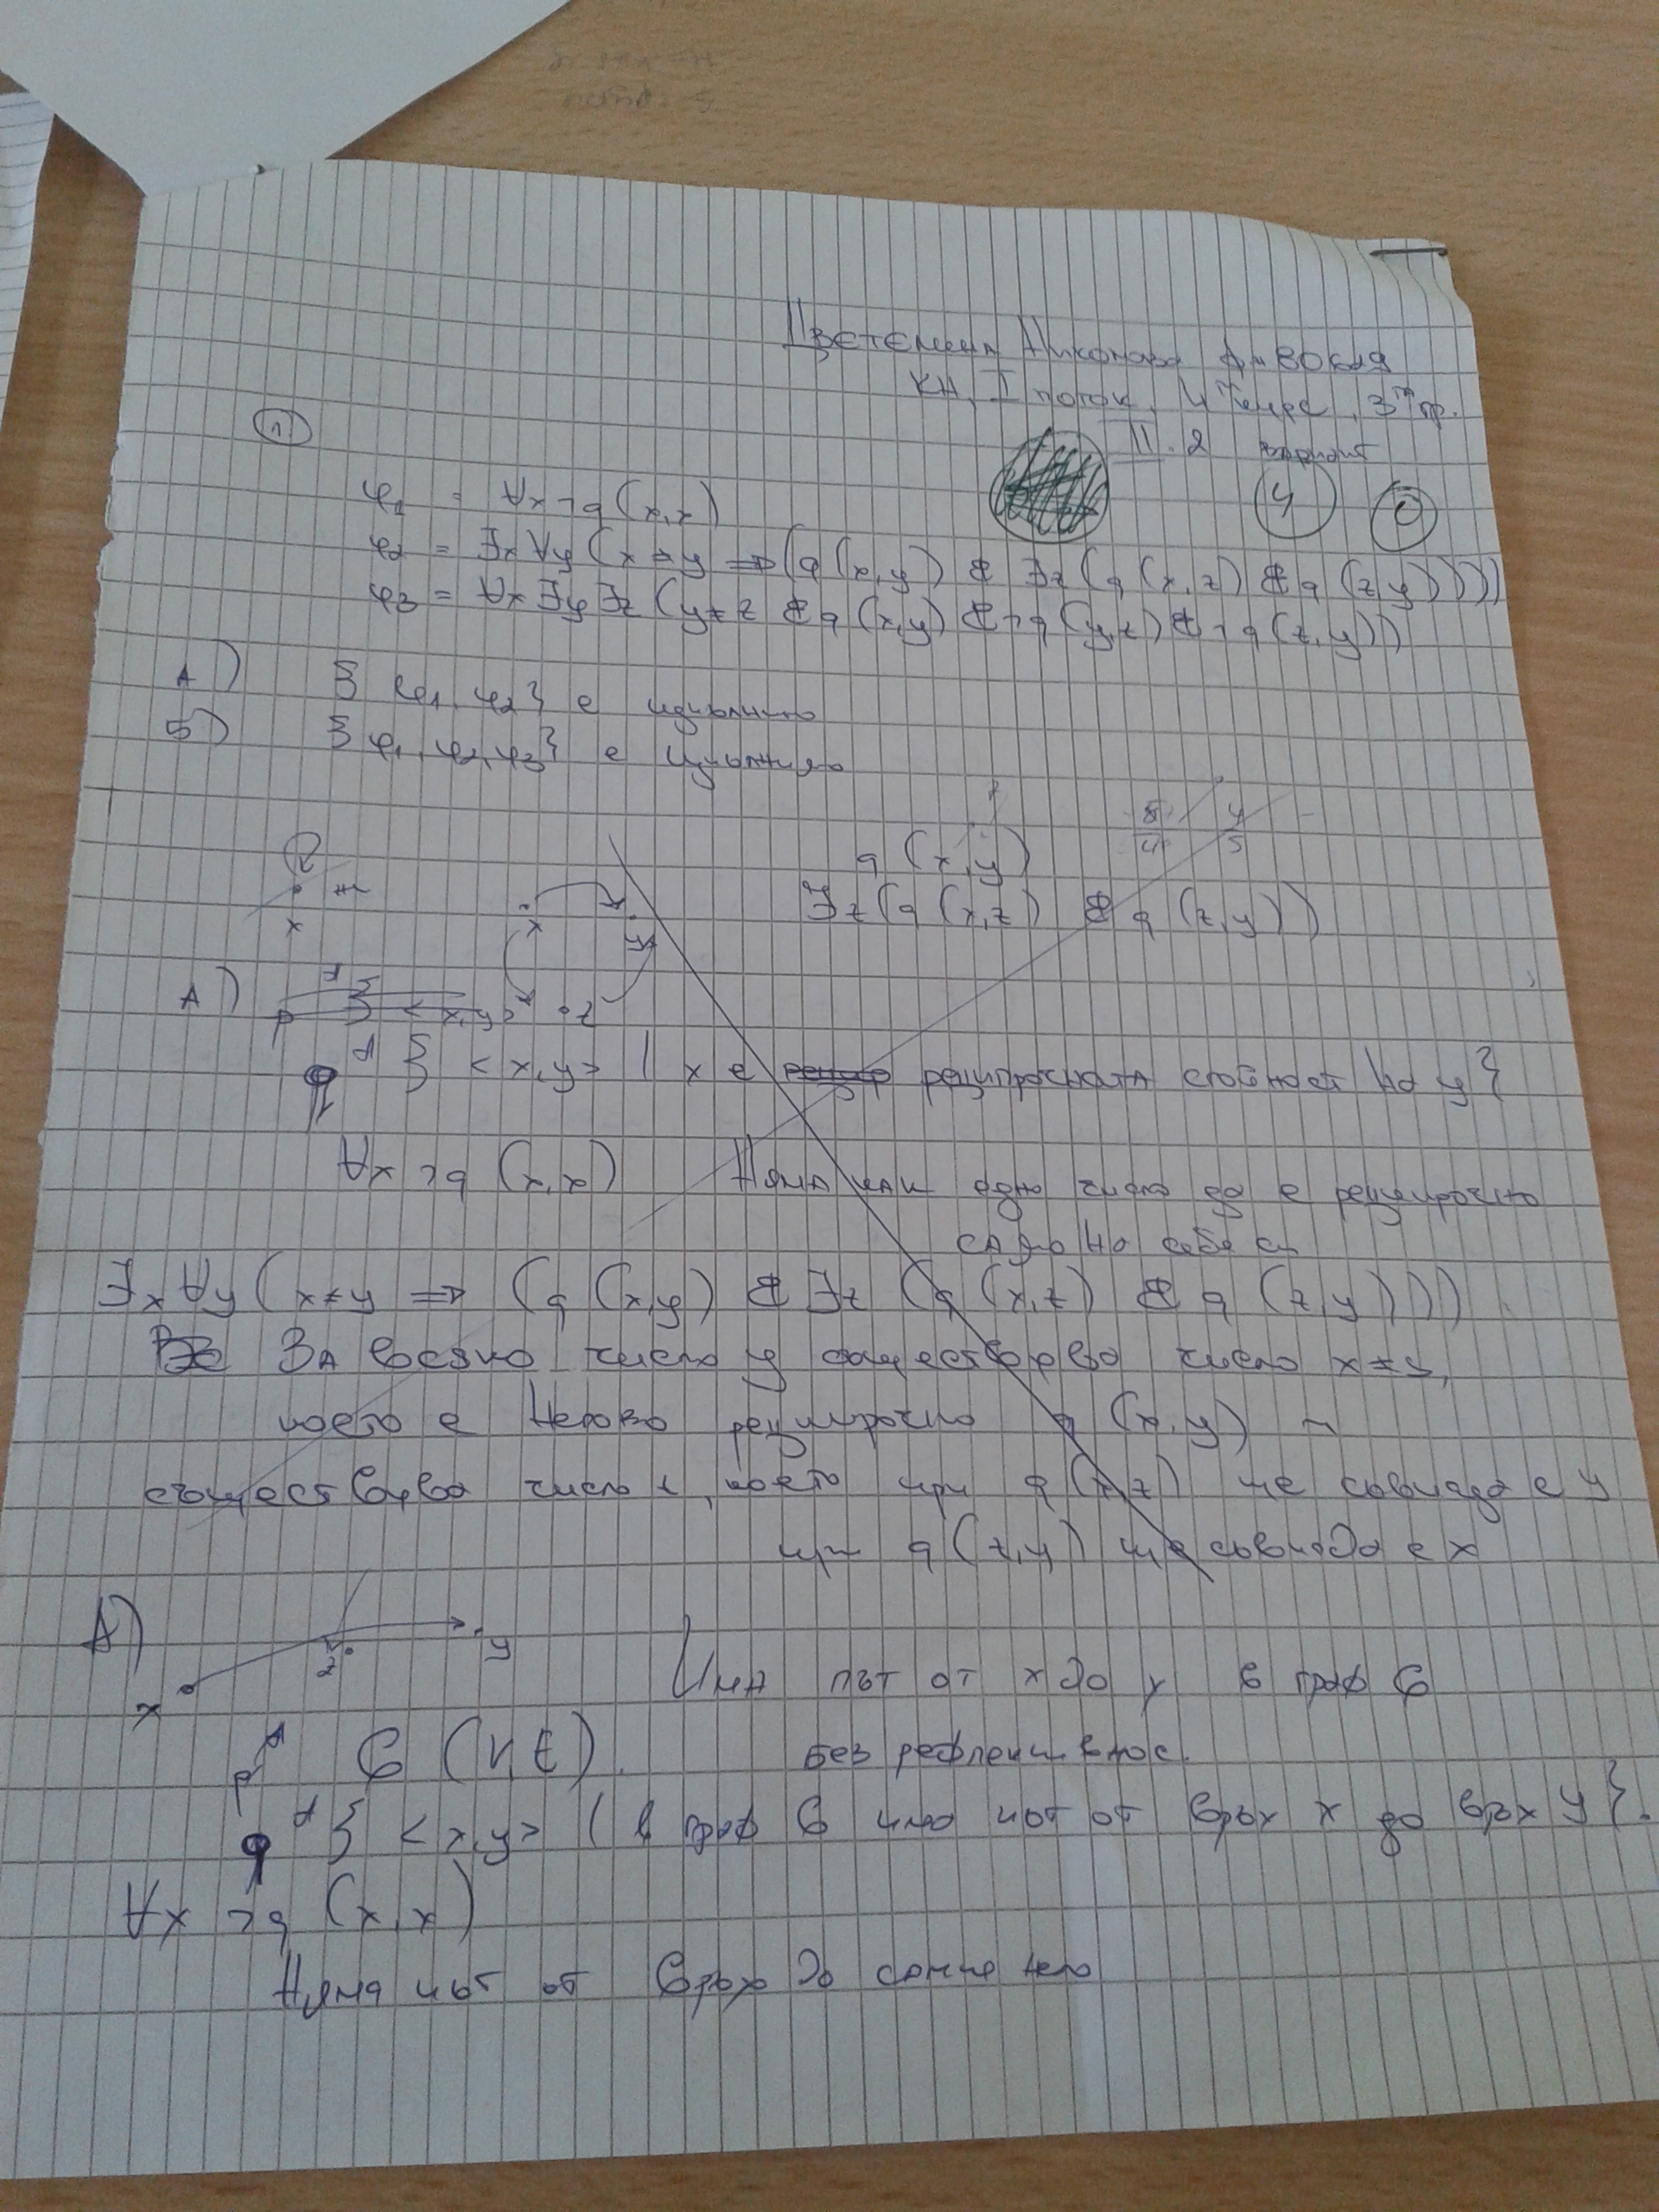 КН, I поток, 3та гр.
II. 2 вариант
①
4 0
φ1 = ∀x¬q(x,x)
φ2 = ∃x∀y(x≠y ⇒ (q(x,y) & ∃z(q(x,z) & q(z,y))))
φ3 = ∀x∃y∃z(y≠z & q(x,y) & ¬q(y,z) & ¬q(z,y))
А) {φ1, φ2} е изпълнимо
Б) {φ1, φ2, φ3} е изпълнимо
q(x,y)
x
x y
∃z(q(x,z) & q(z,y))
А) z
q^A { <x,y> | x е реципрочната стойност на y}
∀x ¬q(x,x) Няма как едно число да е реципрочно
само на себе си
∃x∀y(x≠y ⇒ (q(x,y) & ∃z(q(x,z) & q(z,y)))
За всяко число y съществува число x≠y,
което е негово реципрочно q(x,y) и
съществува число z, което при q(x,z) ще съвпада с y
при q(z,y) ще съвпада с x
А) x z y
Има път от x до y в граф G
G(V,E). без рефлексивност.
q^A { <x,y> | в граф G има път от връх x до връх y}.
∀x ¬q(x,x)
Няма път от връх до самия него